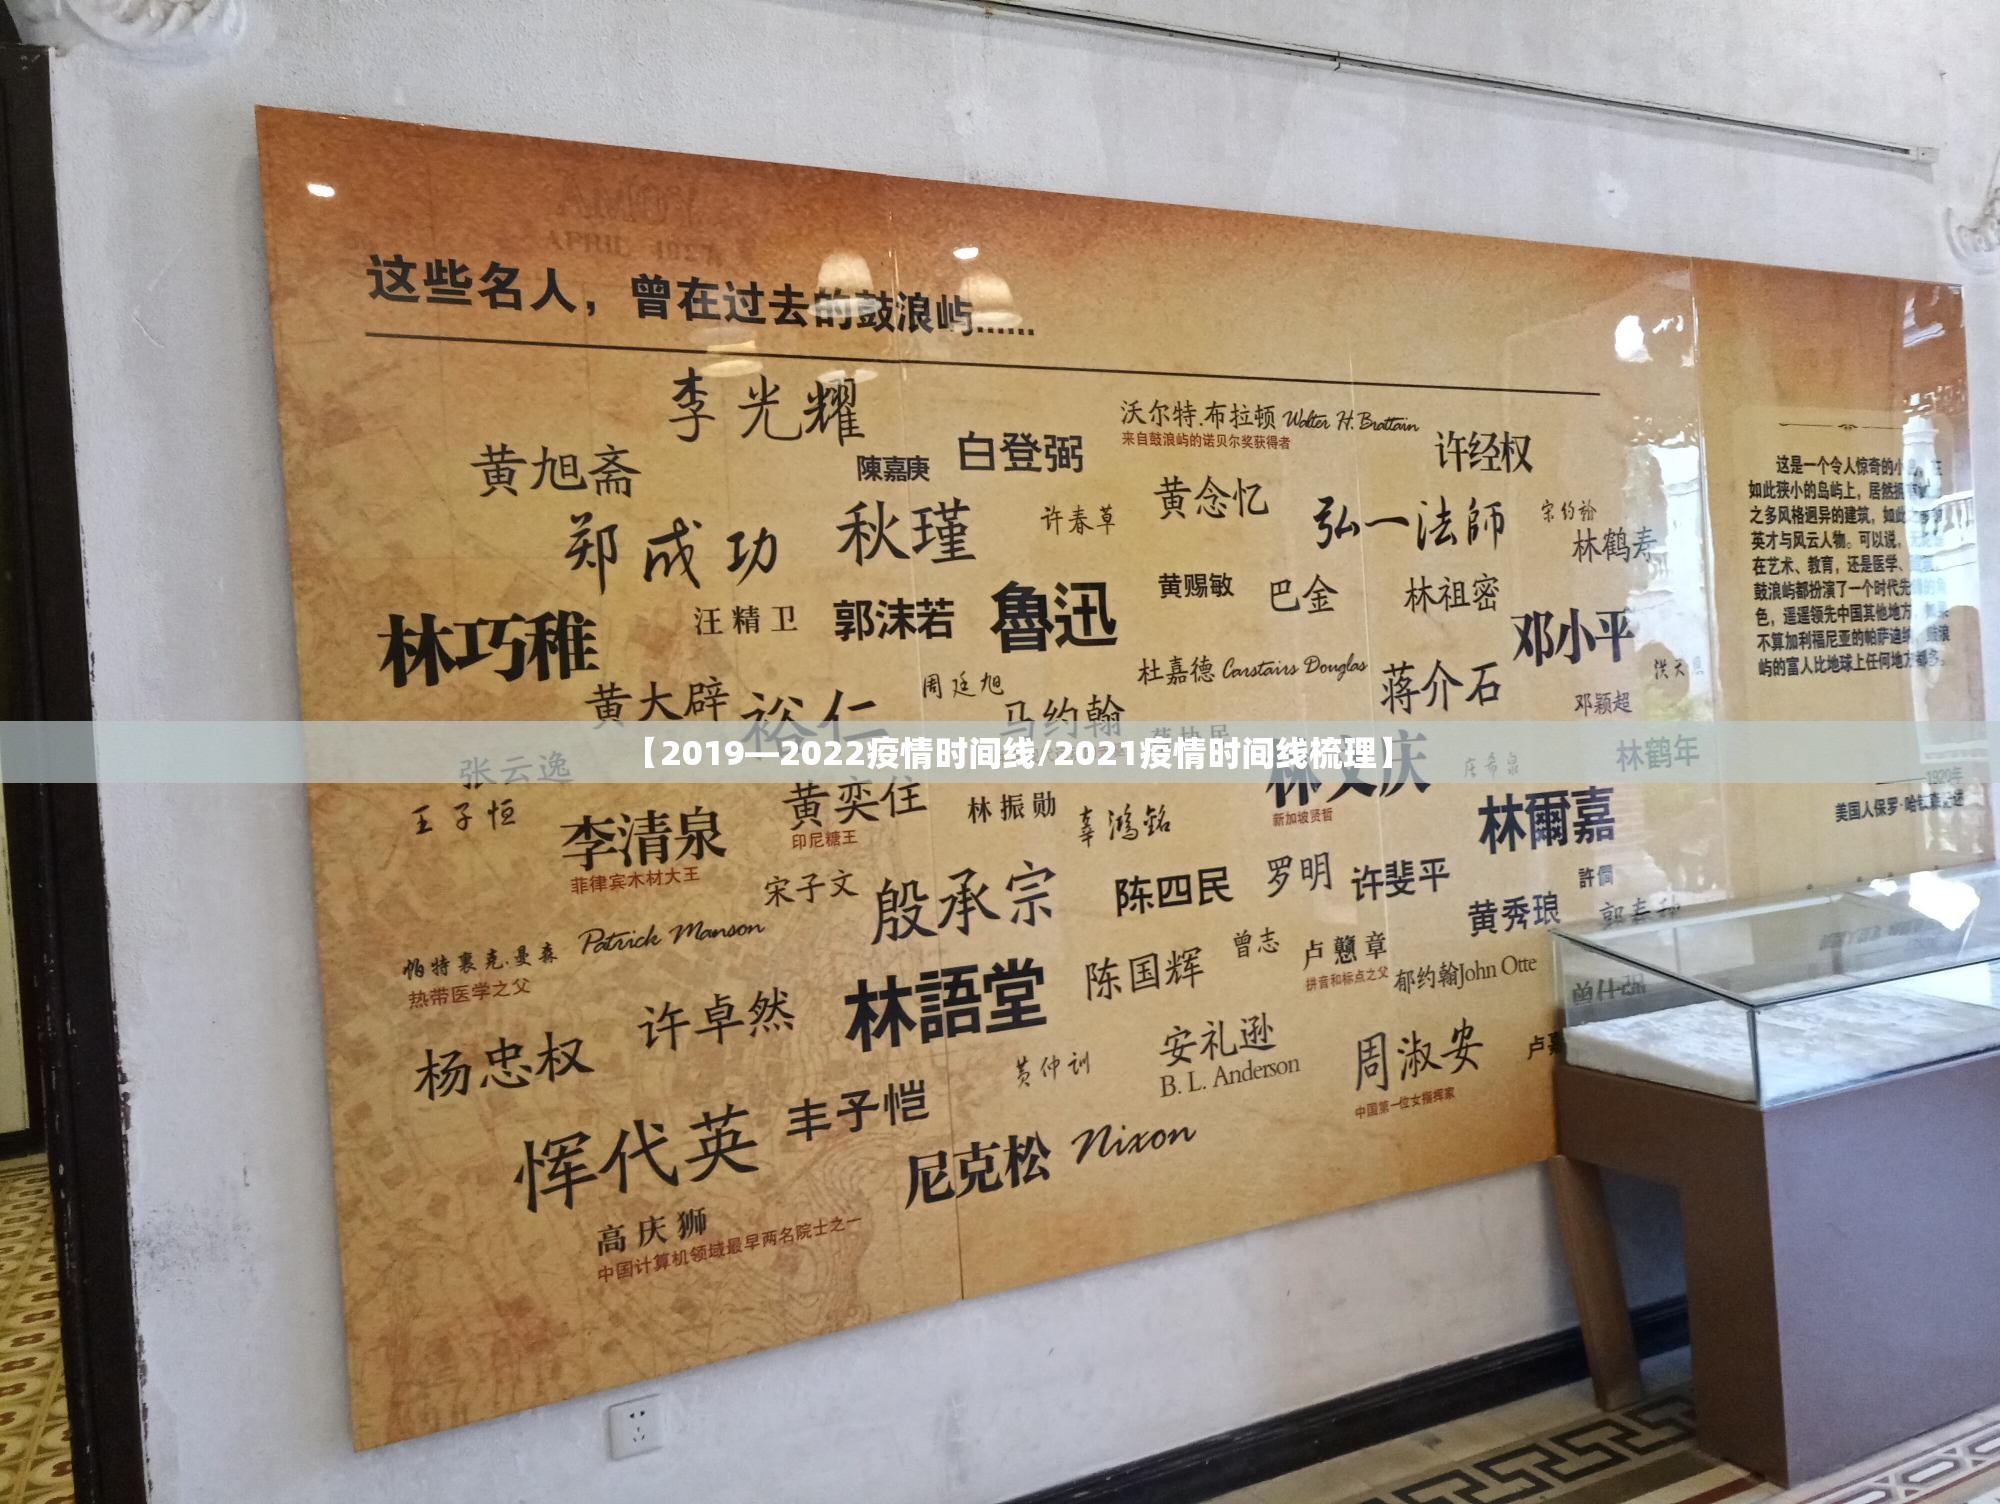 这些名人，曾在过去的鼓浪屿......
李光耀
沃尔特.布拉顿 Walter H. Brattain
来自鼓浪屿的诺贝尔奖获得者
黄旭斋
陳嘉庚
白登弼
许经权
郑成功
秋瑾
许春草
黄念忆
弘一法師
林鹤寿
林巧稚
汪精卫
郭沫若
魯迅
黄赐敏
巴金
林祖密
邓小平
黄大辟
裕仁
周廷旭
马约翰
杜嘉德 Carstairs Douglas
蒋介石
邓颖超
【2019—2022疫情时间线/2021疫情时间线梳理】
张云逸
林文庆
新加坡贤哲
庄希泉
林鹤年
王子恒
李清泉
菲律宾木材大王
黄奕住
印尼糖王
林振勋
辜鴻銘
林爾嘉
宋子文
殷承宗
陈四民
罗明
许斐平
許倜
黄秀琅
帕特裏克.曼森 Patrick Manson
热带医学之父
许卓然
林語堂
陈国辉
曾志
卢戆章
拼音和标点之父
郁约翰John Otte
杨忠权
黄仲训
安礼逊
B. L. Anderson
周淑安
中国第一位女指挥家
恽代英
丰子恺
尼克松 Nixon
高庆狮
中国计算机领域最早两名院士之一
这是一个令人惊奇的小
如此狭小的岛屿上，居然
之多风格迥异的建筑，如此
英才与风云人物。可以说，
在艺术、教育，还是医学、
鼓浪屿都扮演了一个时代先
色，遥遥领先中国其他地方
不算加利福尼亚的帕萨迪纳，鼓浪
屿的富人比地球上任何地方都多。
1920年
美国人保罗·哈